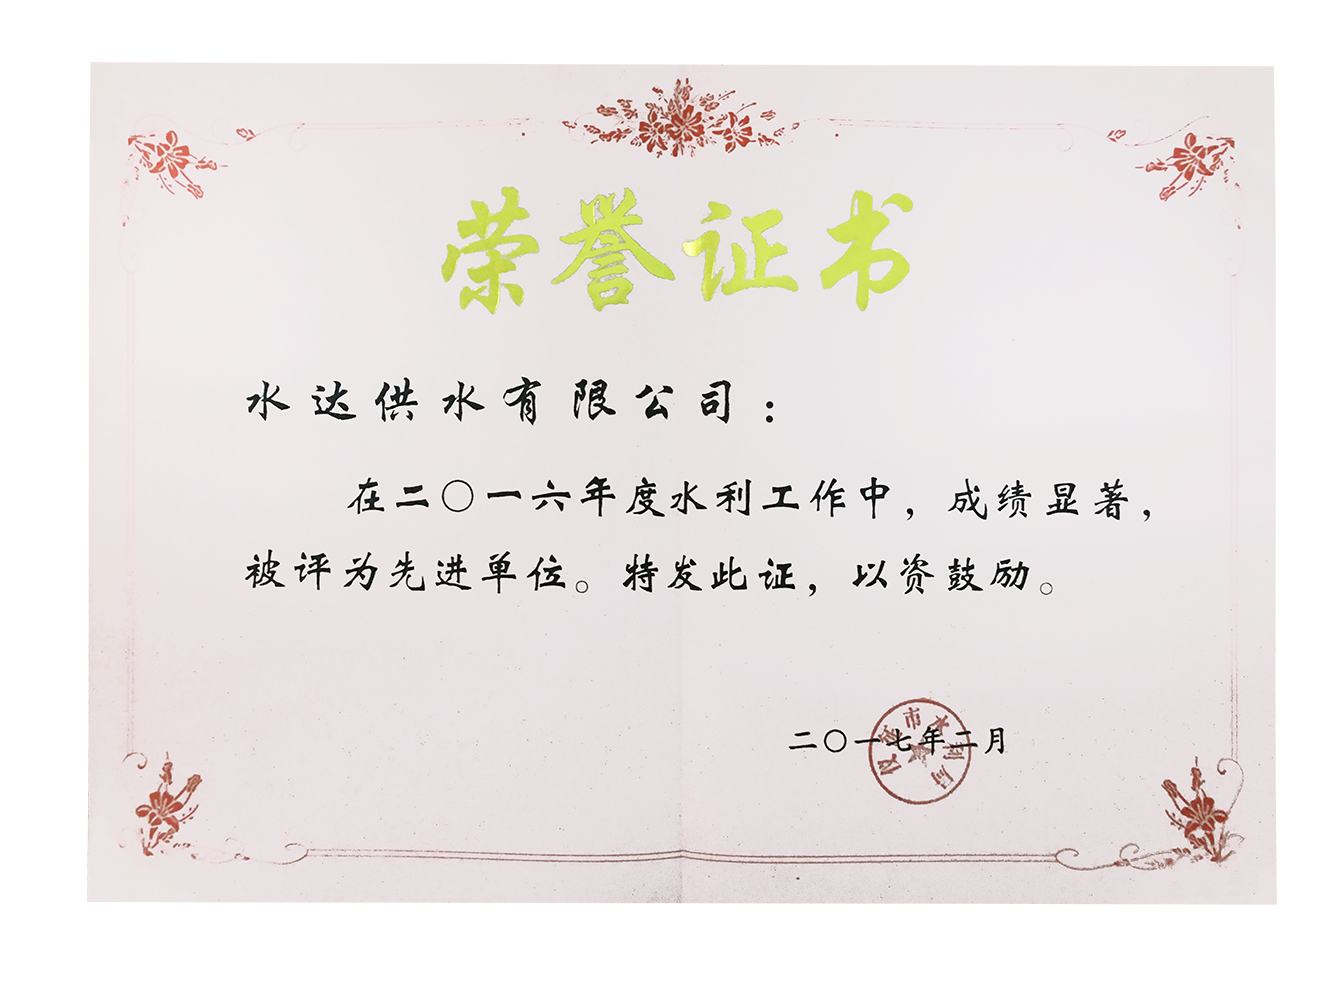 荣誉证书
水达供水有限公司：
在二〇一六年度水利工作中，成绩显著，
被评为先进单位。特发此证，以资鼓励。
二〇一七年二月
市水利局